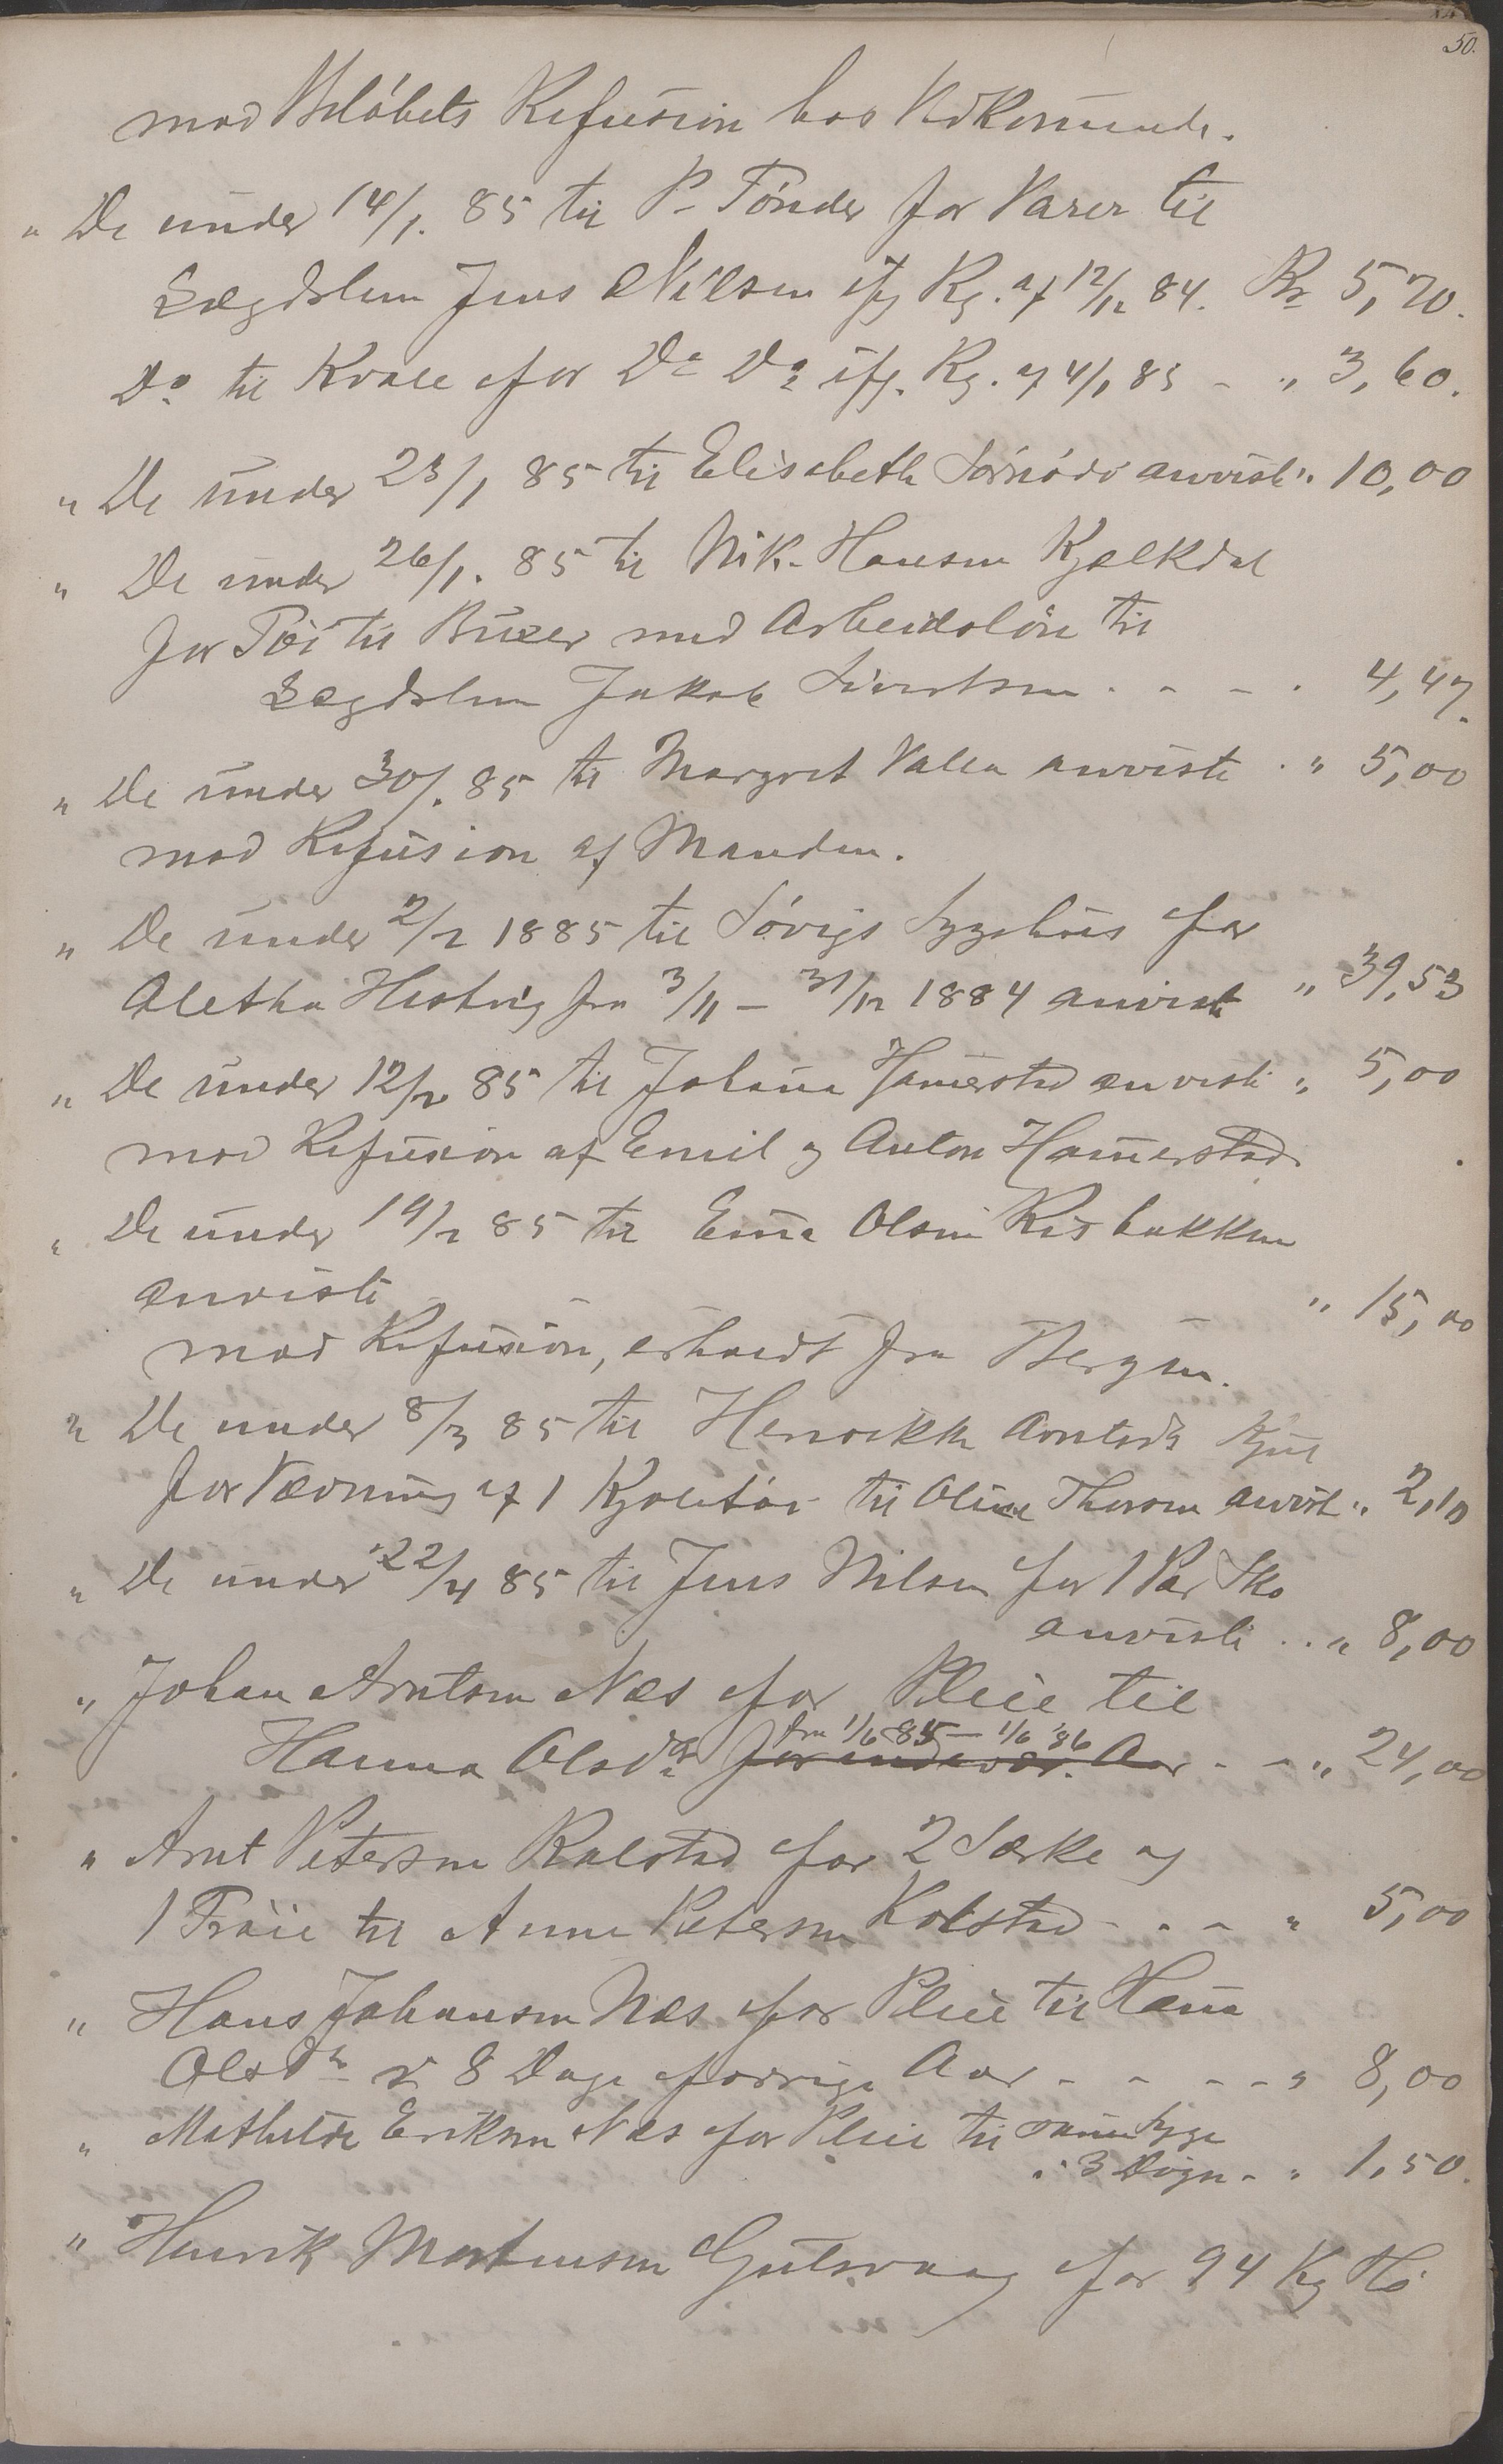 50.
mod Beløbets Refusion hos Vedkommende.
" De under 14/1. 85 til P. Tønder for Varer til
Lægdslem Jens Nilsen ifg Rg. af 12/12 84. Kr 5,70.
Do til Kvale for Do Do ifg. Rg. af 4/1 85 - " 3,60.
" De under 23/1 85 til Elisabeth anviste " 10,00
" De under 26/1. 85 til Nik. Hansen Kjelkdal
for Tøi til Buxer med Arbeidsløn til
Lægdslem Jakob Sivertsen . - - . 4,47.
" De under 30/1. 85 til Margret Valen anviste . " 5,00
mod Refusion af Manden.
" De under 2/2 1885 til Søvigs Sygehus for
Aletha Hestvig fra 3/11 - 31/12 1884 anvist " 39,53
" De under 12/2 85 til Johanna Hamerstad anviste " 5,00
mod Refusion af Emil og Anton Hamerstad.
" De under 19/2 85 til Emma Olsen Risbakken
anviste - - " 15,00
mod Refusion, erholdt fra Bergen.
" De under 8/3 85 til Henrikke Arntsdr
for Vævning af 1 Kjoletøi til Oline Thorsen anvist " 2,10
" De under 22/4 85 til Jens Nilsen for 1 Par Sko
anviste . . " 8,00
" Johan Arntsen Næs for Pleie til
fra 1/6 85 - 1/6 86
Hanna Olsdr for indevær. Aar - - " 24,00
" Arnt Petersen Kolstad for 2 Særke og
1 Trøie til Anne Petersen Kolstad - . - " 5,00
" Hans Johansen Næs for Pleie til Hanna
Olsdr i 8 Dage forrige Aar - - - - " 8,00
" Mathilde Eriksen Næs for Pleie til samme Syge
i 3 Døgn - " 1,50.
" Henrik Martinsen Gutsvaag for 94 Kg Hø